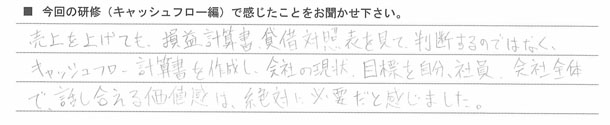 ■ 今回の研修（キャッシュフロー編）で感じたことをお聞かせ下さい。
売上を上げても、損益計算書、貸借対照表を見て、判断するのではなく、
キャッシュフロー計算書を作成し、会社の現状、目標を自分、社員、会社全体
で、話し合える価値感は、絶対に必要だと感じました。